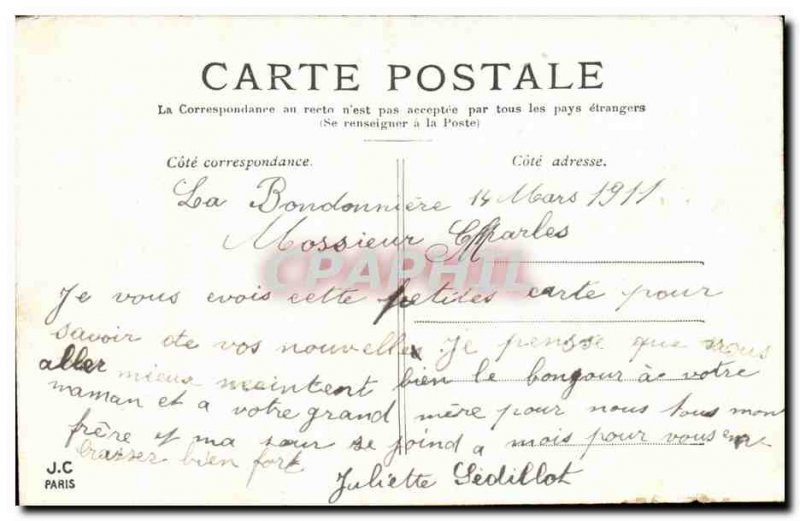 CARTE POSTALE
La Correspondance au recto n'est pas acceptée par tous les pays étrangers
(Se renseigner à la Poste)
Côté correspondance.
Côté adresse.
La Bondonnière 14 Mars 1911
Mossieur Charles
CPAPHIL
Je vous evois cette petites carte pour
savoir de vos nouvelle Je pensse que vous
aller mieux maintent bien le bongour à votre
maman et a votre grand mère pour nous tous mon
frère et ma sœur se joind a mois pour vous em
brasser bien fort
Juliette Sédillot
J.C
PARIS